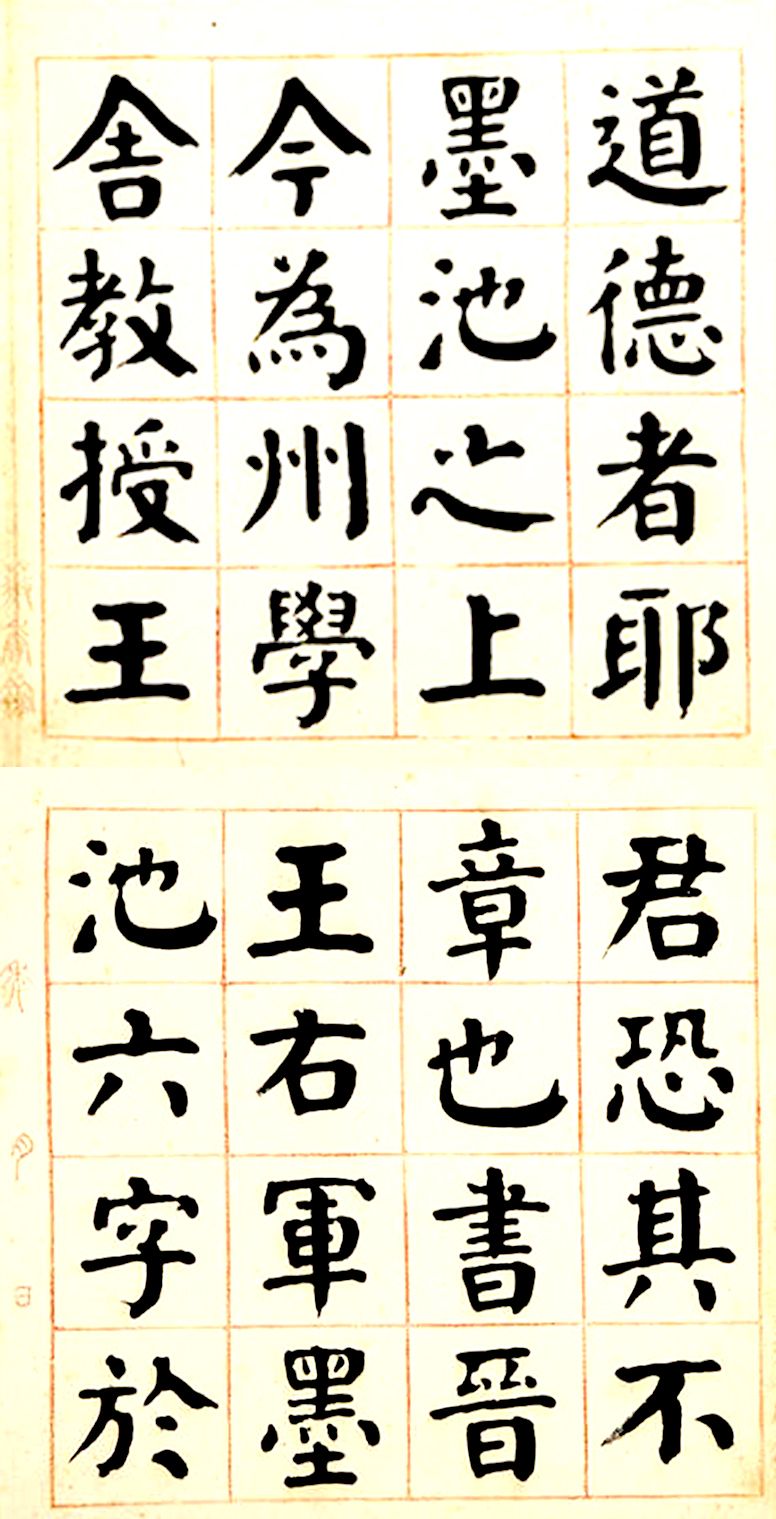 道德者耶
墨池之上
今為州學
舍教授王
君恐其不
章也書晉
王右軍墨
池六字於